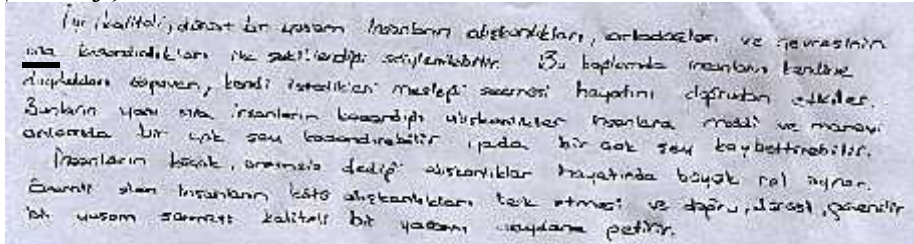 İyi, kaliteli, dürüst bir yaşam insanların alışkanlıkları, arkadaşları ve çevresinin
ona kazandırdıkları ile şekillendiği söylenebilir. Bu kapsamda insanların kendine
duyguları, kendi istedikleri mesleği seçmesi hayatını doğrudan etkiler.
Bunların yanı sıra insanların kazandığı alışkanlıklar insanlara maddi ve manevi
anlamda bir çok şey kazandırabilir yada bir çok şey kaybettirebilir.
İnsanların küçük, önemsiz dediği alışkanlıklar hayatında büyük rol oynar.
Önemli olan insanların kötü alışkanlıkları terk etmesi ve doğru, dürüst, güvenilir
bir yaşam kaliteli bir yaşam meydana getirir.